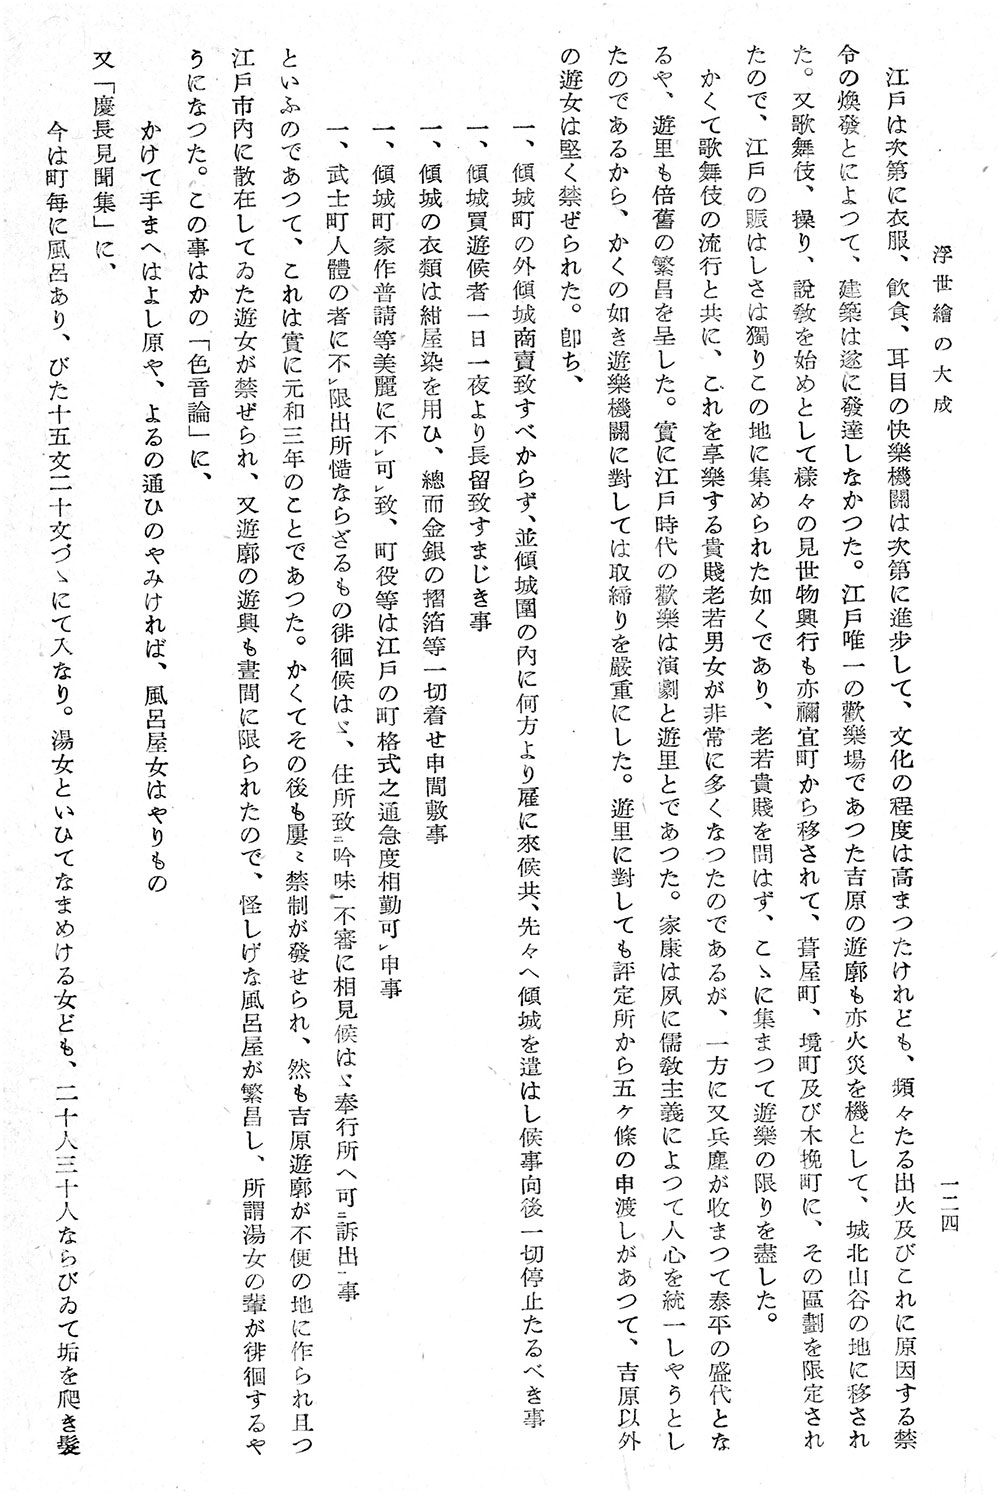 浮世繪の大成
一二四
江戸は次第に衣服、飮食、耳目の快樂機關は次第に進步して、文化の程度は高まつたけれども、頻々たる出火及びこれに原因する禁
令の煥發とによつて、建築は遂に發達しなかつた。江戸唯一の歡樂場であつた吉原の遊廓も亦火災を機として、城北山谷の地に移され
た。又歌舞伎、操り、說敎を始めとして樣々の見世物興行も亦禰宜町から移されて、葺屋町、境町及び木挽町に、その區劃を限定され
たので、江戸の賑はしさは獨りこの地に集められた如くであり、老若貴賤を問はず、こゝに集まつて遊樂の限りを盡した。
かくて歌舞伎の流行と共に、これを享樂する貴賤老若男女が非常に多くなつたのであるが、一方に又兵塵が收まつて泰平の盛代とな
るや、遊里も倍舊の繁昌を呈した。實に江戸時代の歡樂は演劇と遊里とであつた。家康は夙に儒敎主義によつて人心を統一しやうとし
たのであるから、かくの如き遊樂機關に對しては取締りを嚴重にした。遊里に對しても評定所から五ケ條の申渡しがあつて、吉原以外
の遊女は堅く禁ぜられた。卽ち、
一、傾城町の外傾城商賣致すべからず、並傾城圍の內に何方より雇に來候共、先々へ傾城を遣はし候事向後一切停止たるべき事
一、傾城買遊候者一日一夜より長留致すまじき事
一、傾城の衣類は紺屋染を用ひ、總而金銀の摺箔等一切着せ申間敷事
一、傾城町家作普請等美麗に不レ可レ致、町役等は江戸の町格式之通急度相勤可レ申事
一、武士町人體の者に不レ限出所慥ならざるもの徘徊候はゞ、住所致二吟味一不審に相見候はゞ奉行所へ可二訴出一事
といふのであつて、これは實に元和三年のことであつた。かくてその後も屢〻禁制が發せられ、然も吉原遊廓が不便の地に作られ且つ
江戸市內に散在してゐた遊女が禁ぜられ、又遊廓の遊興も晝間に限られたので、怪しげな風呂屋が繁昌し、所謂湯女の輩が徘徊するや
うになつた。この事はかの「色音論」に、
かけて手まへはよし原や、よるの通ひのやみければ、風呂屋女はやりもの
又「慶長見聞集」に、
今は町每に風呂あり、びた十五文二十文づゝにて入なり。湯女といひてなまめける女ども、二十人三十人ならびゐて垢を爬き髮